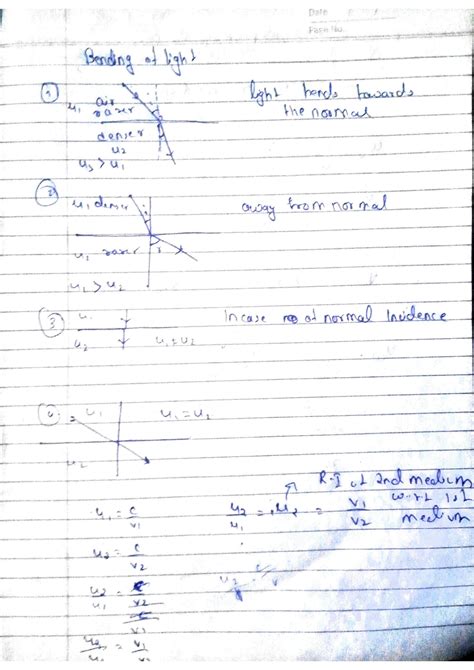 Date
Page No.
Bending of light
1
u₁ air
rarer
denser
u₂
u₂ > u₁
light bends towards
the normal
2
u₁ denser
i
u₂ rarer
r
u₁ > u₂
away from normal
3
u₁
u₂
u₁ = u₂
In case of normal Incidence
4
u₁
u₂
u₁ = u₂
R.I of 2nd medium
w.r.t 1st
medium
u₁ = c/v₁
u₂/u₁ = ₁u₂ = v₁/v₂
u₂ = c/v₂
u₂/u₁ = c/v₂ / c/v₁
u₂/u₁ = v₁/v₂